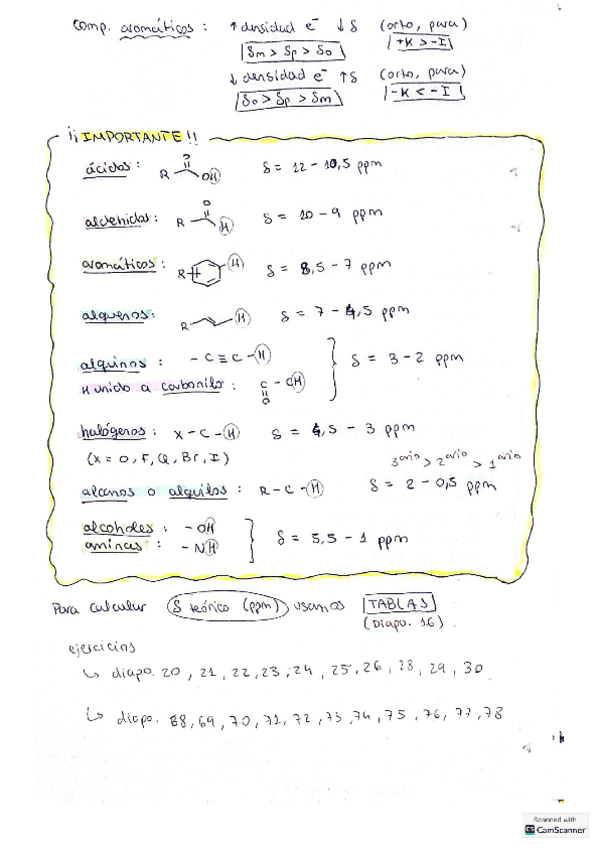 Comp. aromáticos : ↑ densidad e⁻ ↓ δ (orto, para)
δm > δp > δo +K > -I
↓ densidad e⁻ ↑ δ (orto, para)
δo > δp > δm -K < -I
¡¡ IMPORTANTE !!
ácidos : R O OH δ = 12 - 10,5 ppm
aldehidos : R O H δ = 10 - 9 ppm
aromáticos : R H δ = 8,5 - 7 ppm
alquenos : R H δ = 7 - 4,5 ppm
alquinos : - C ≡ C - H
H unido a carbonilo : C - CH O
δ = 3 - 2 ppm
halógenos : X - C - H δ = 4,5 - 3 ppm
(X = O, F, Cl, Br, I)
3ario > 2ario > 1ario
alcanos o alquilos : R - C - H δ = 2 - 0,5 ppm
alcoholes : - OH
aminas : - NH
δ = 5,5 - 1 ppm
Para calcular δ teórico (ppm) usamos TABLAS
(Diapo. 16)
ejercicios
↳ diapo. 20, 21, 22, 23, 24, 25, 26, 28, 29, 30
↳ diapo. 68, 69, 70, 71, 72, 73, 74, 75, 76, 77, 78
Scanned with
CS CamScanner